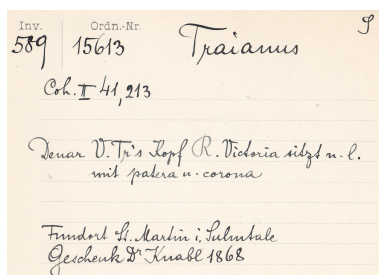 Inv. Ordn.-Nr.
589 15613 Traianus S
Coh. II 41, 213
Denar V. Tr's Kopf R. Victoria sitzt n. l.
mit patera u. corona
Fundort St. Martin i. Sulmtale
Geschenk Dr Knabl 1868